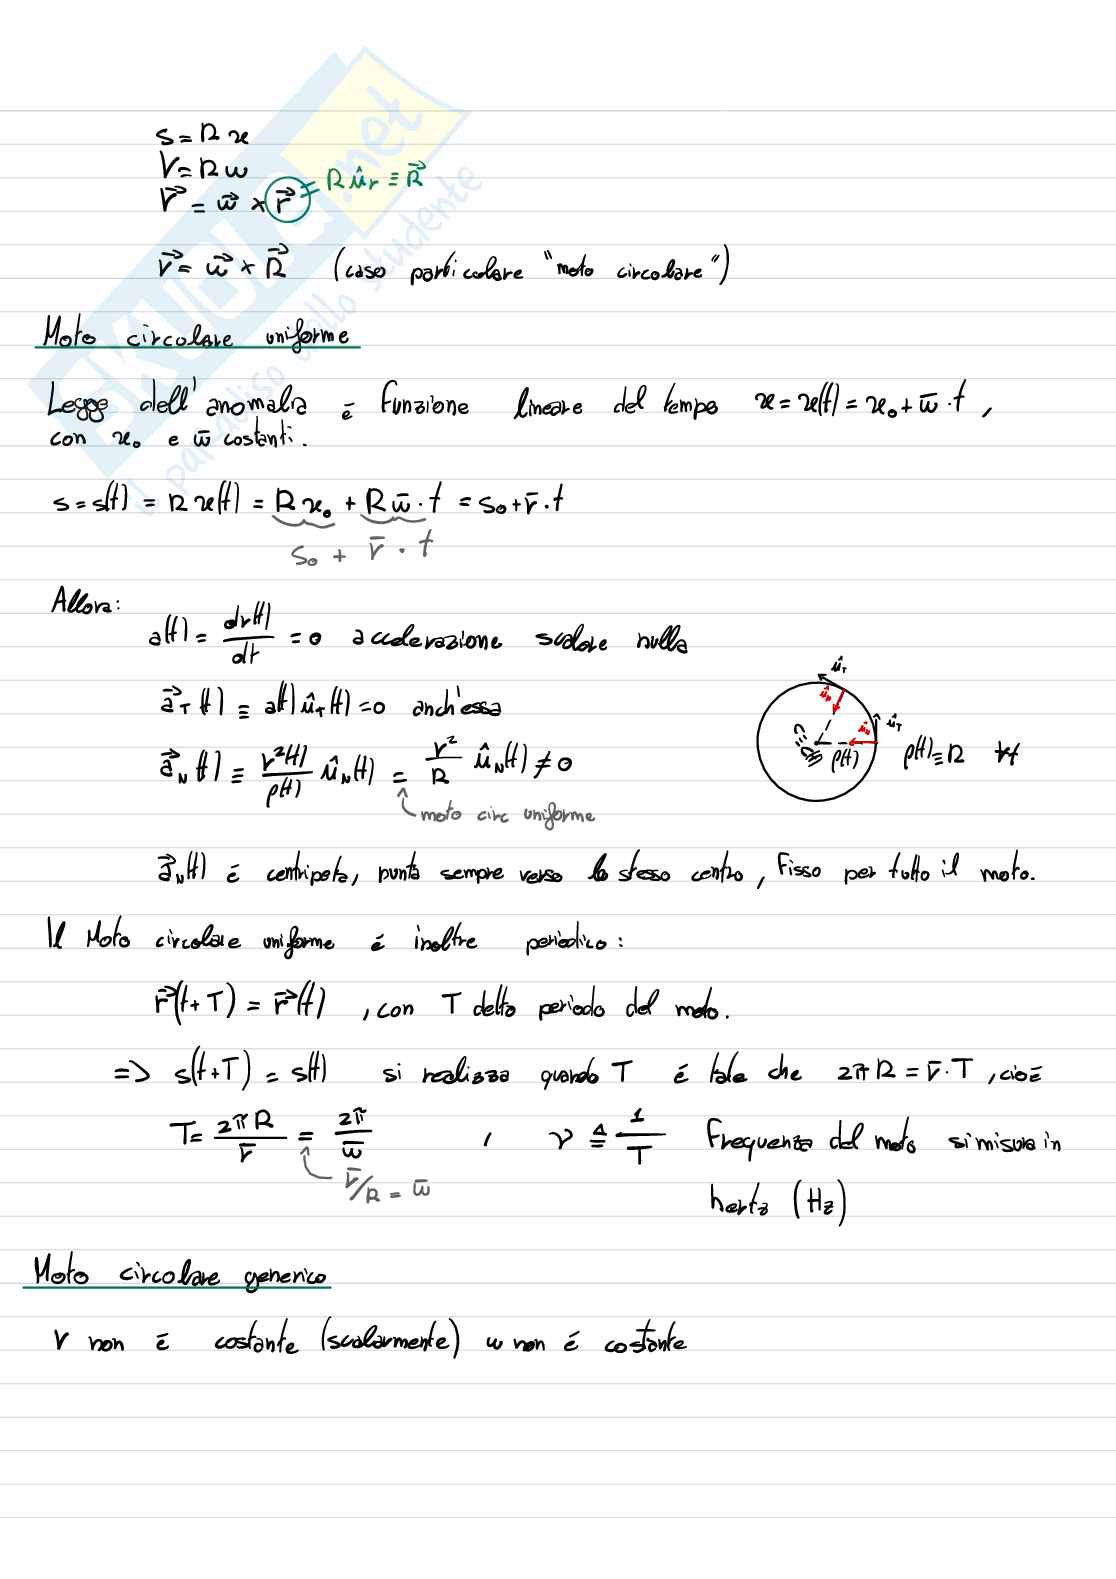 s = R x
V = R ω
V⃗ = ω⃗ × r⃗ = R û_r ≡ R⃗
v⃗ = ω⃗ × R⃗ (caso particolare "moto circolare")
Moto circolare uniforme
Legge dell'anomalia è funzione lineare del tempo x = x(t) = x₀ + ω̄ · t ,
con x₀ e ω̄ costanti.
s = s(t) = R x(t) = R x₀ + R ω̄ · t = s₀ + v̄ · t
s₀ + v̄ · t
Allora:
a(t) = dv(t)/dt = 0 accelerazione scalare nulla
a⃗_T(t) ≡ a(t) û_T(t) = 0 anch'essa
a⃗_N(t) ≡ v²(t)/ρ(t) û_N(t) = v²/R û_N(t) ≠ 0
moto circ uniforme
û_T
û_N
û_T
û_N
C≡C(t)
ρ(t)
ρ(t) ≡ R ∀t
a⃗_N(t) è centripeta, punta sempre verso lo stesso centro, fisso per tutto il moto.
Il Moto circolare uniforme è inoltre periodico:
r⃗(t+T) = r⃗(t) , con T detto periodo del moto.
=> s(t+T) = s(t) si realizza quando T è tale che 2πR = v̄ · T , cioè
T = 2πR/v̄ = 2π/ω̄ , ν ≜ 1/T Frequenza del moto si misura in
v̄/R = ω̄
hertz (Hz)
Moto circolare generico
v non è costante (scalarmente) ω non è costante
SKUOLA.net
il paradiso dello studente